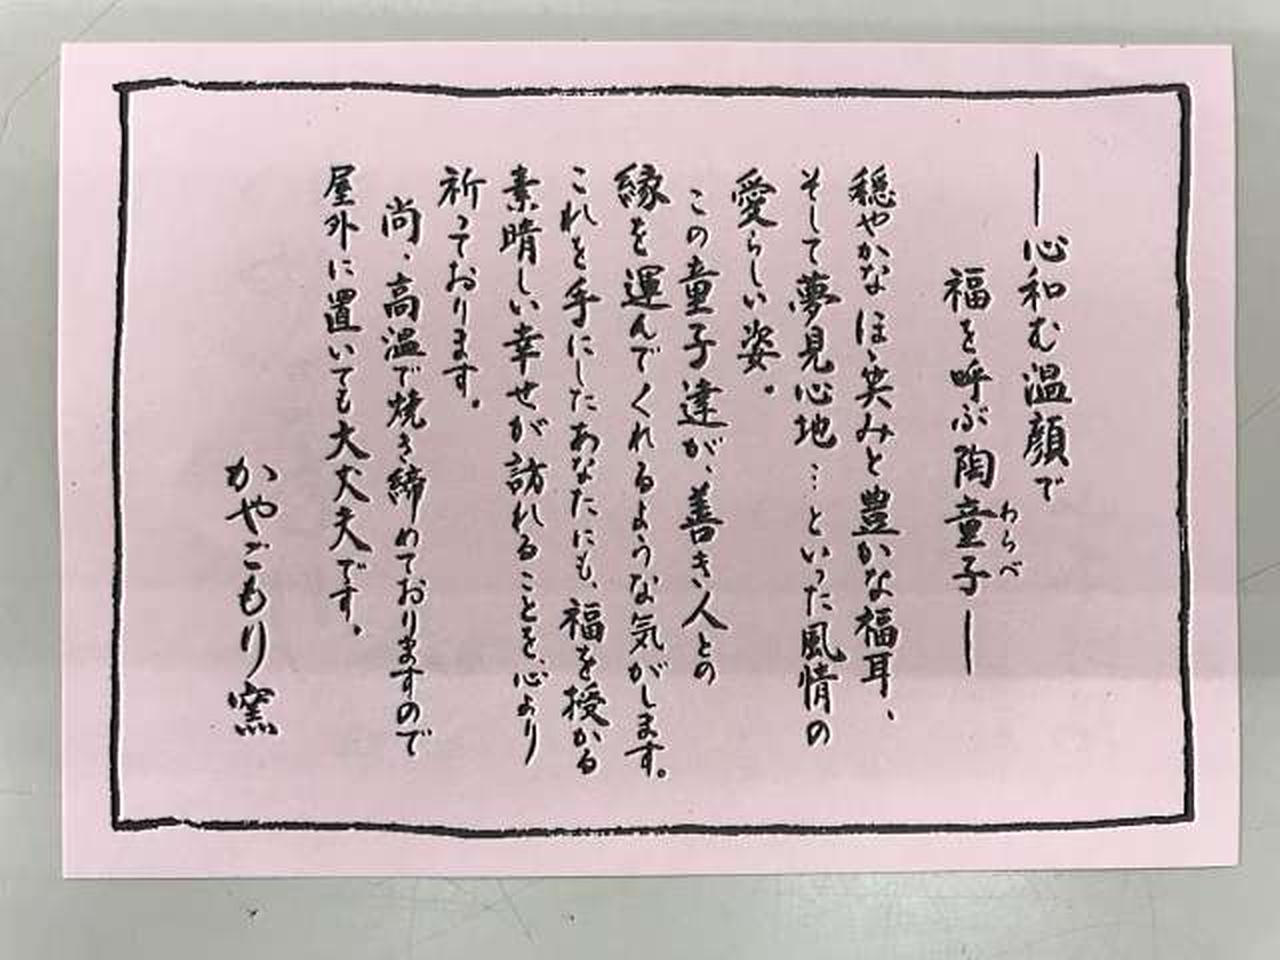 ―心和む温顔で
福を呼ぶ陶童子―
わらべ
穏やかなほゝ笑みと豊かな福耳、
そして夢見心地…といった風情の
愛らしい姿。
この童子達が、善き人との
縁を運んでくれるような気がします。
これを手にしたあなたにも、福を授かる
素晴しい幸せが訪れることを、心より
祈っております。
尚、高温で焼き締めておりますので
屋外に置いても大丈夫です。
かやごもり窯